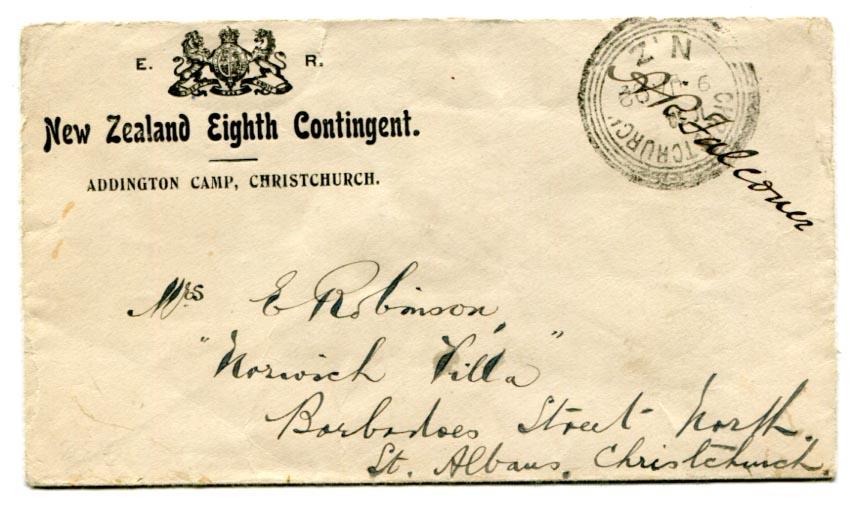 E. R.
New Zealand Eighth Contingent.
ADDINGTON CAMP, CHRISTCHURCH.
N.Z
CHRISTCHURCH
Falconer
Mrs E Robinson,
"Norwich Villa"
Barbadoes Street North.
St. Albans. Christchurch.